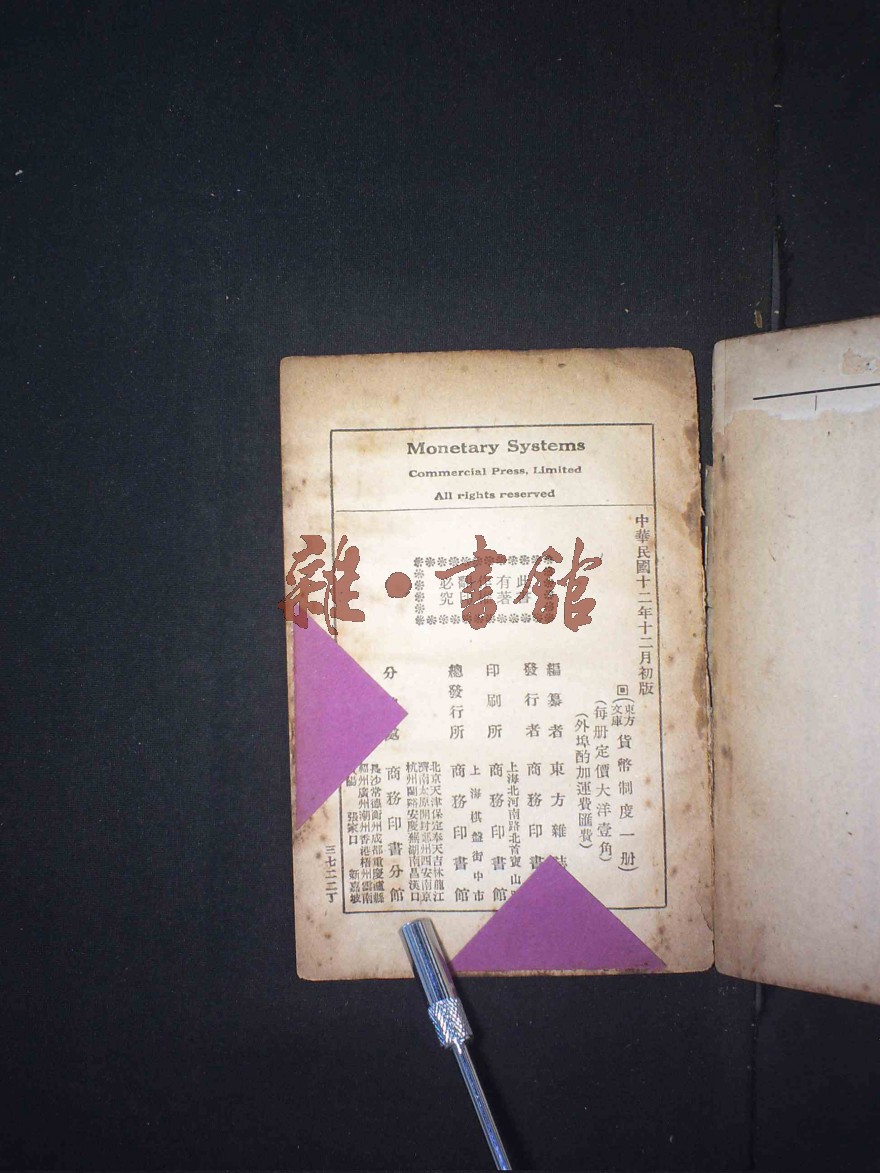 Monetary Systems
Commercial Press, Limited
All rights reserved
中華民國十二年十二月初版
(東方文庫)貨幣制度一册)
(每册定價大洋壹角)
(外埠酌加運費匯費)
編纂者 東方雜
發行者 商務印書
上海北河南路北首寶山
印刷所 商務印書館
上海棋盤街中市
總發行所 商務印書館
北京天津保定奉天吉林龍江
濟南太原開封鄭州西安南京
杭州蘭谿安慶蕪湖南昌漢口
分 處 商務印書分館
長沙常德衡州成都重慶瀘縣
福州廣州潮州香港梧州雲南
張家口 新嘉坡
此書有著
必究
三七二二丁
雜·書館